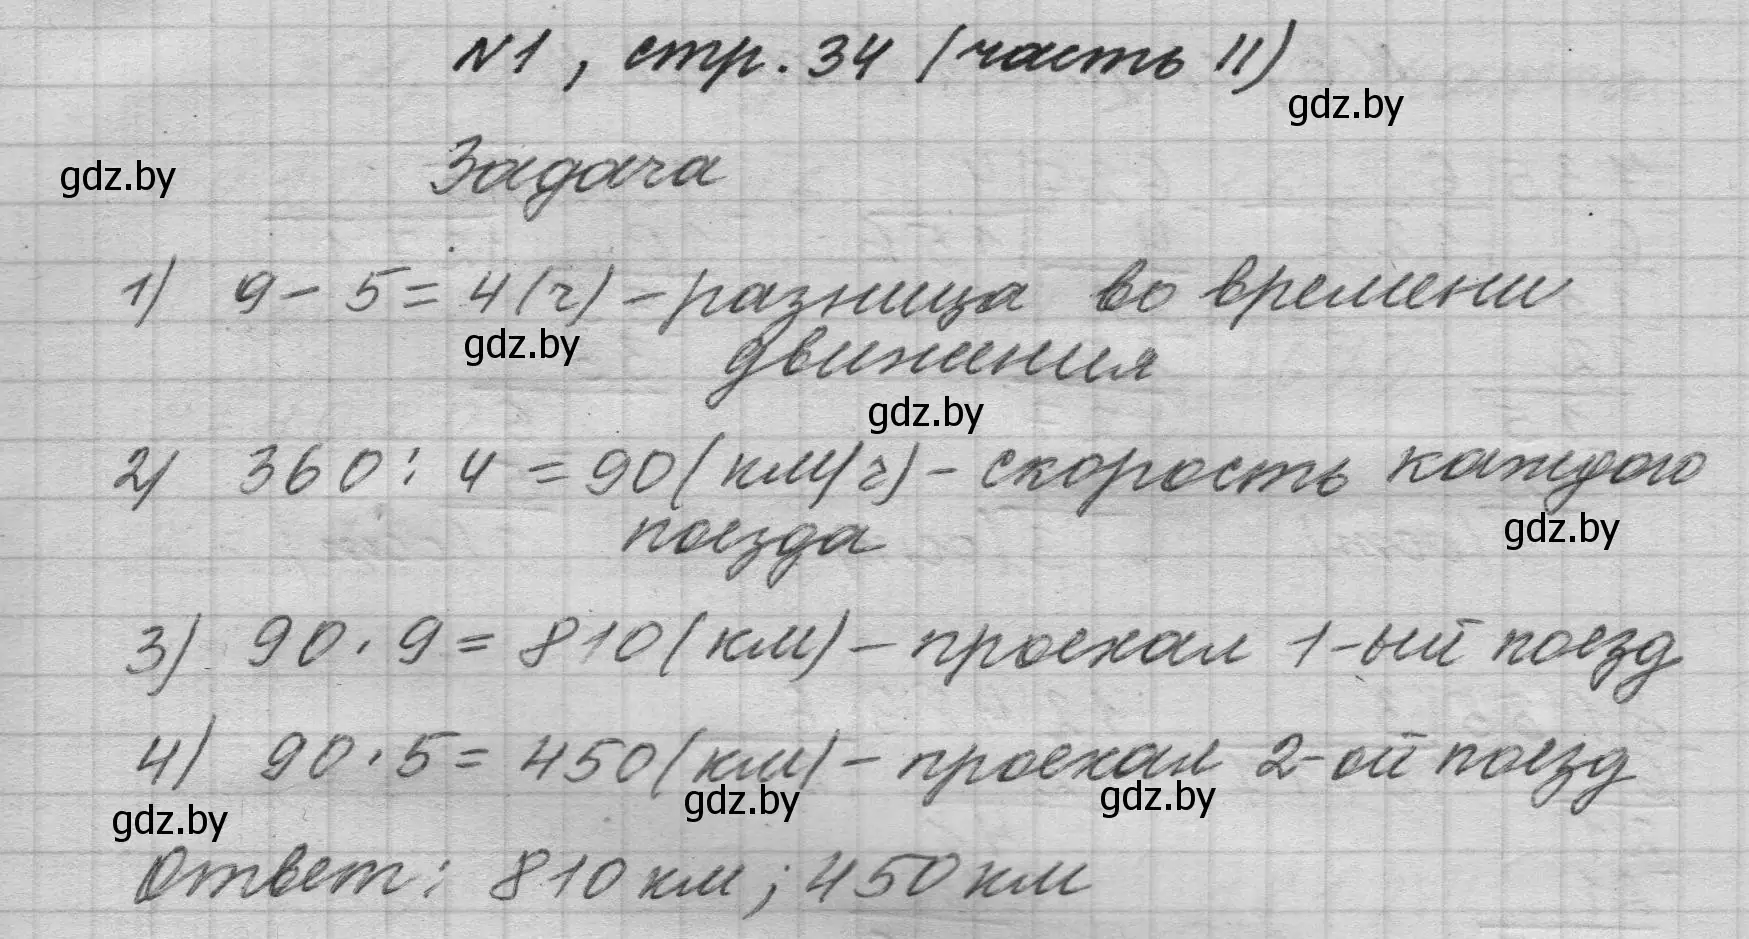 №1, стр. 34 (часть II)
gdz.by
gdz.by
Задача
1) 9 - 5 = 4 (ч) - разница во времени
gdz.by
движения
gdz.by
2) 360 : 4 = 90 (км/ч) - скорость каждого
gdz.by
поезда
3) 90 · 9 = 810 (км) - проехал 1-ый поезд
4) 90 · 5 = 450 (км) - проехал 2-ой поезд
gdz.by
gdz.by
gdz.by
Ответ: 810 км; 450 км